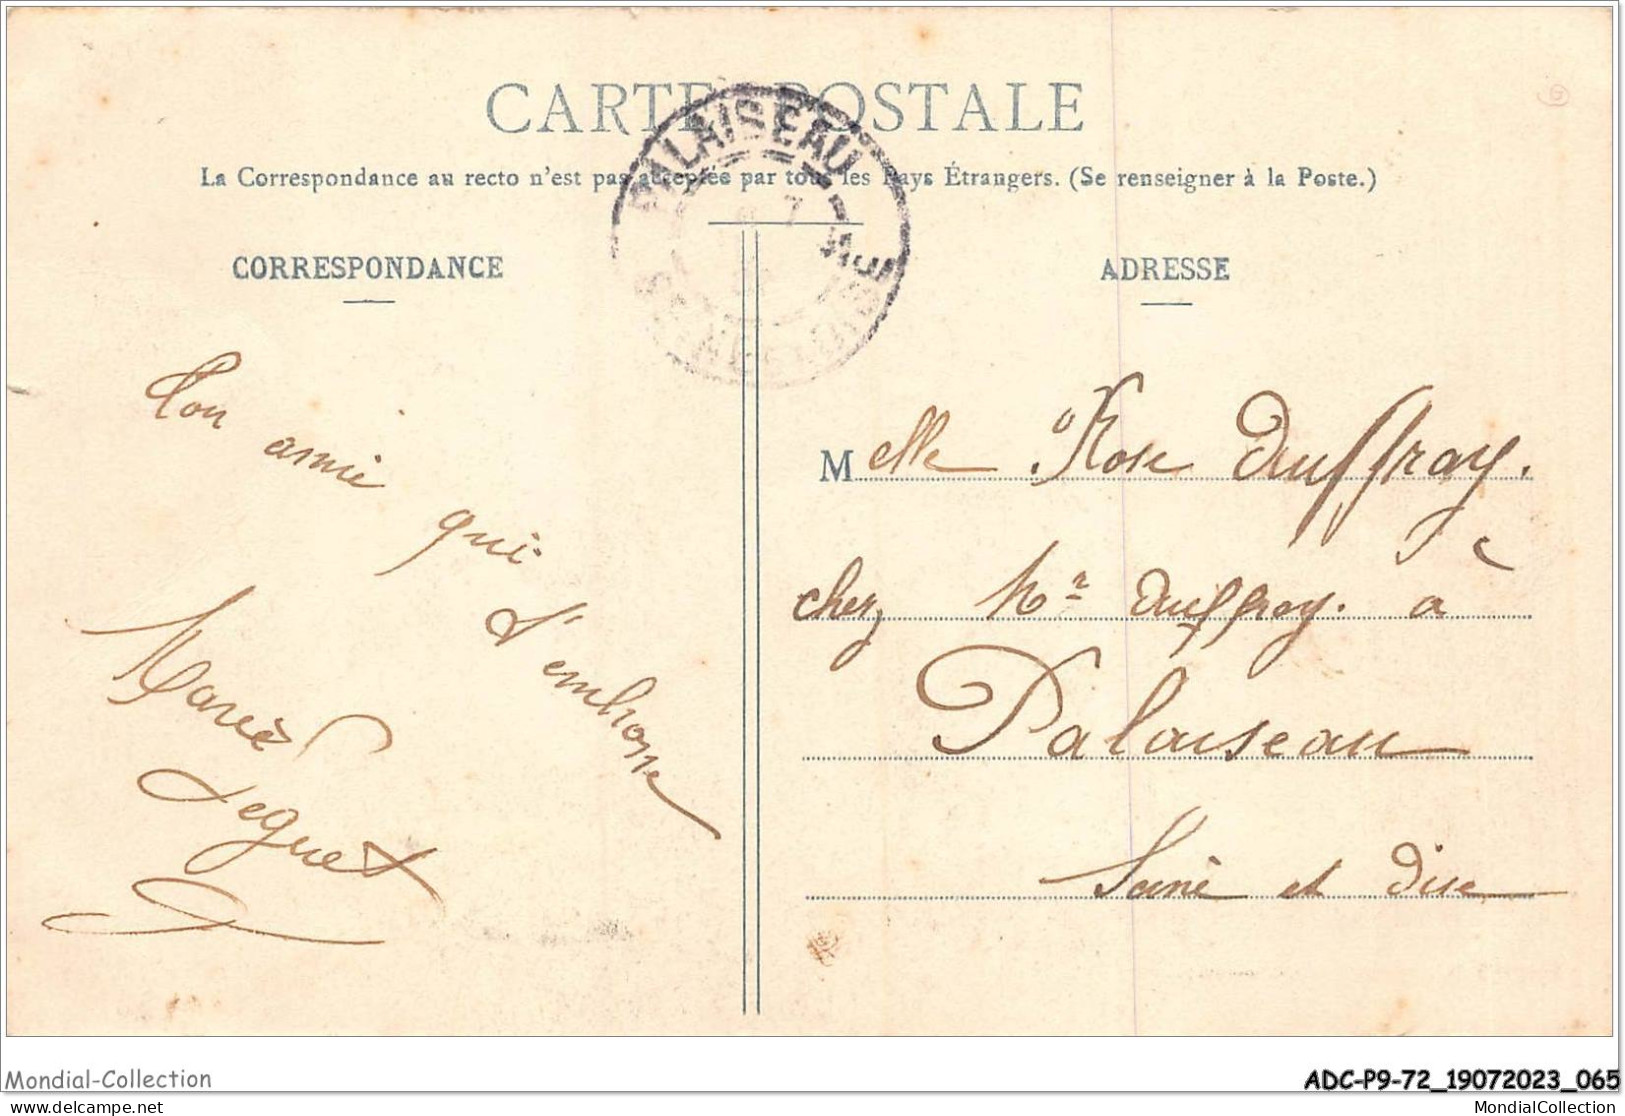 CARTE POSTALE
La Correspondance au recto n'est pas acceptée par tous les Pays Étrangers. (Se renseigner à la Poste.)
PALAISEAU
7
SEINE-ET-OISE
CORRESPONDANCE
Ton amie
qui
t'embrasse
Marie
Leguet
ADRESSE
Melle Rose Duffray.
chez Mr Duffray. à
Palaiseau
Seine et Oise
Mondial-Collection
delcampe.net
ADC-P9-72_19072023_065
MondialCollection